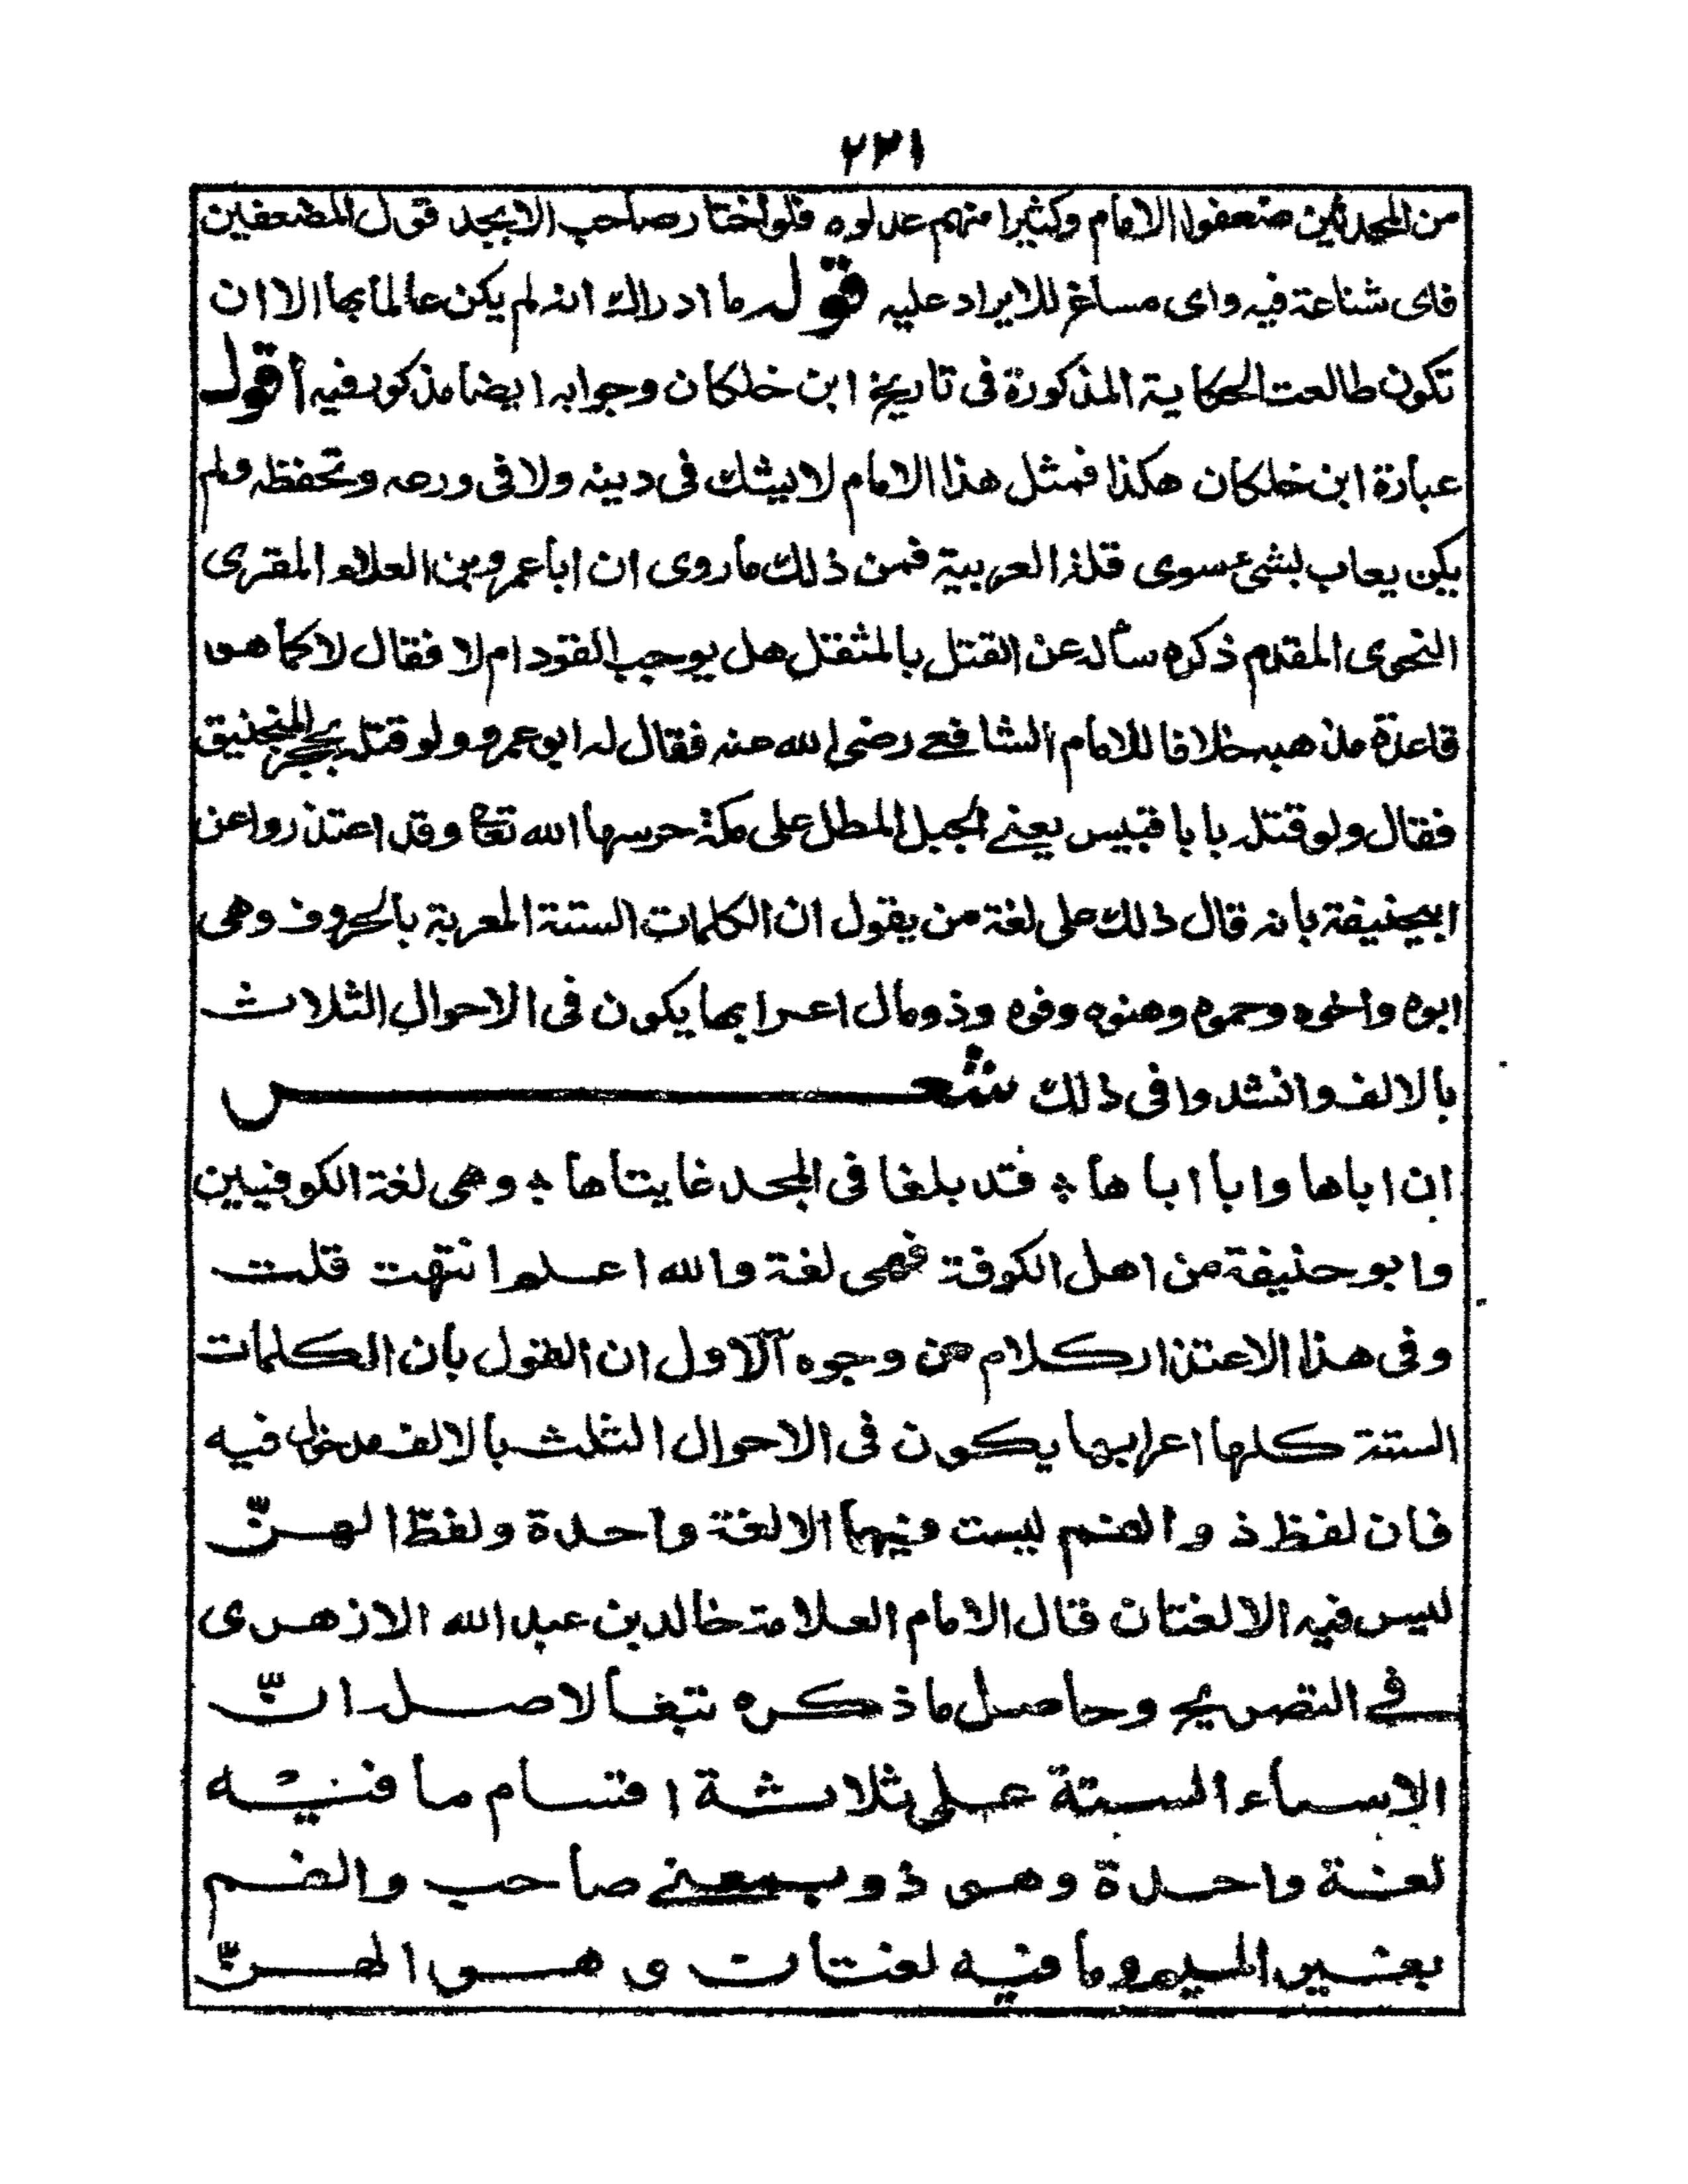 ٢٢١
من المحدثين ضعفوا الامام وكثيرا منهم عدلوه فلو اختار صاحب الابجد قول المضعفين
فاى شناعة فيه واى مساغ للايراد عليه قوله ما ادراك انه لم يكن عالما بها الا ان
تكون طالعت الحكاية المذكورة فى تاريخ ابن خلكان وجوابه ايضا مذكور فيه اقول
عبارة ابن خلكان هكذا فمثل هذا الامام لا يشك فى دينه ولا فى ورعه وتحفظه ولم
يكن يعاب بشئ سوى قلة العربية فمن ذلك ما روى ان ابا عمرو بن العلاء المقرى
النحوى المقدم ذكره سأله عن القتل بالمثقل هل يوجب القود ام لا فقال لا كما هو
قاعدة مذهبه خلافا للامام الشافعے رضى الله عنه فقال له ابو عمرو ولو قتله بحجر المنجنيق
فقال ولو قتله بابا قبيس يعنے الجبل المطل على مكة حرسها الله تعا وقد اعتذروا عن
ابيحنيفة بانه قال ذلك على لغة من يقول ان الكلمات الستة المعربة بالحروف وهى
ابوه واخوه وحموه وهنوه وفوه وذو مال اعرابها يكون فى الاحوال الثلاث
بالالف وانشدوا فى ذلك شعر
ان اباها وابا اباها ؞ قد بلغا فى المجد غايتاها ؞ وهى لغة الكوفيين
وابو حنيفة من اهل الكوفة فهى لغة والله اعلم انتهت قلت
وفى هذا الاعتذار كلام من وجوه الاول ان القول بان الكلمات
الستة كلها اعرابها يكون فى الاحوال الثلث بالالف مدخول فيه
فان لفظ ذو والفم ليست فيهما الا لغة واحدة ولفظ الهنّ
ليس فيه الا لغتان قال الامام العلامة خالد بن عبد الله الازهرى
فے التصريح وحاصل ما ذكره تبعا لاصله انّ
الاسماء الستة على ثلاثة اقسام ما فيه
لغة واحدة وهى ذو بمعنے صاحب والفم
بغير الميم وما فيه لغتان وهو الهنّ